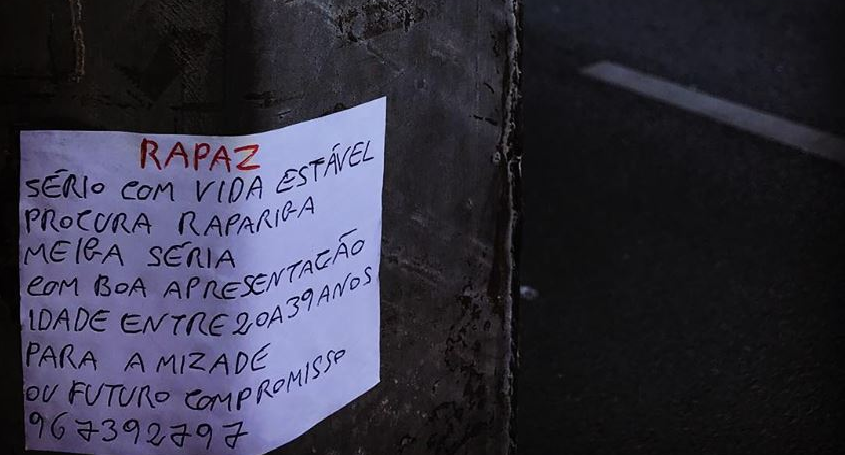 RAPAZ
SÉRIO COM VIDA ESTÁVEL
PROCURA RAPARIGA
MEIGA SÉRIA
COM BOA APRESENTAÇÃO
IDADE ENTRE 20 A 39 ANOS
PARA AMIZADE
OU FUTURO COMPROMISSO
967392797